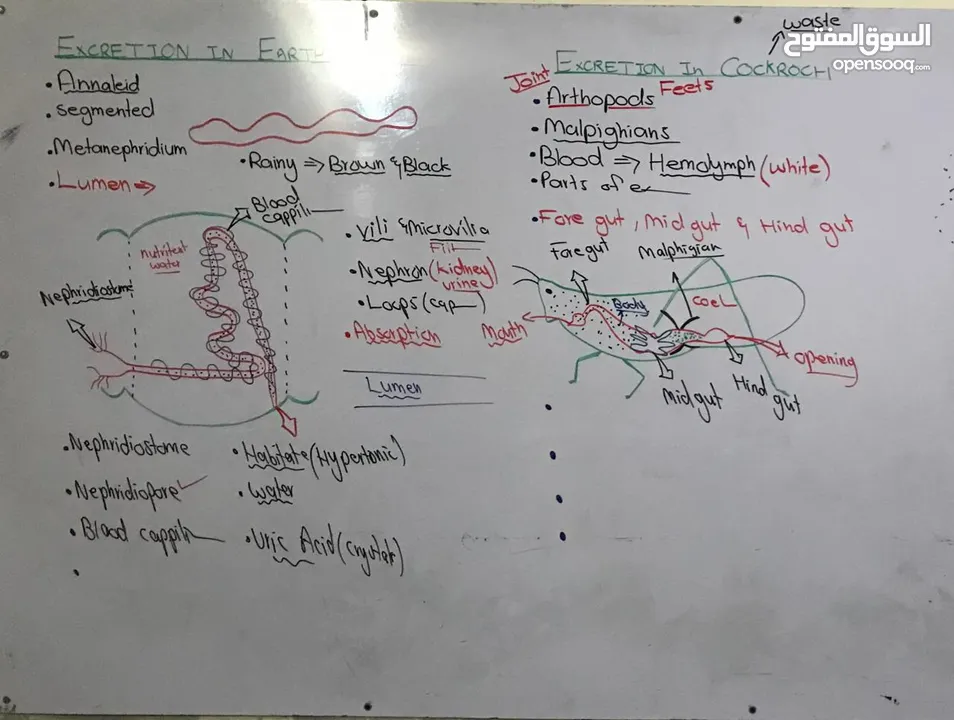 waste
السوق المفتوح
opensooq.com
EXCRETION IN EARTH
• Annaleid
• segmented
• Metanephridium
• Lumen ⇒
• Rainy ⇒ Brown & Black
Blood cappili
nutritent
water
Nephridiostome
• Vili & Microvilia
• Nephron (kidney
urine)
• Loops (cap )
• Absorption
Lumen
• Nephridiostome
• Nephridiopore ✓
• Blood cappili
• Habitate (Hypertonic)
• water
• Uric Acid (crystals)
EXCRETION IN COCKROCH
Joint
Feets
• Arthopods
• Malpighians
• Blood ⇒ Hemolymph (white)
• Parts of
• Fore gut, Mid gut & Hind gut
Fore gut
Malphigian
Body
coeL
Mouth
opening
Mid gut
Hind gut